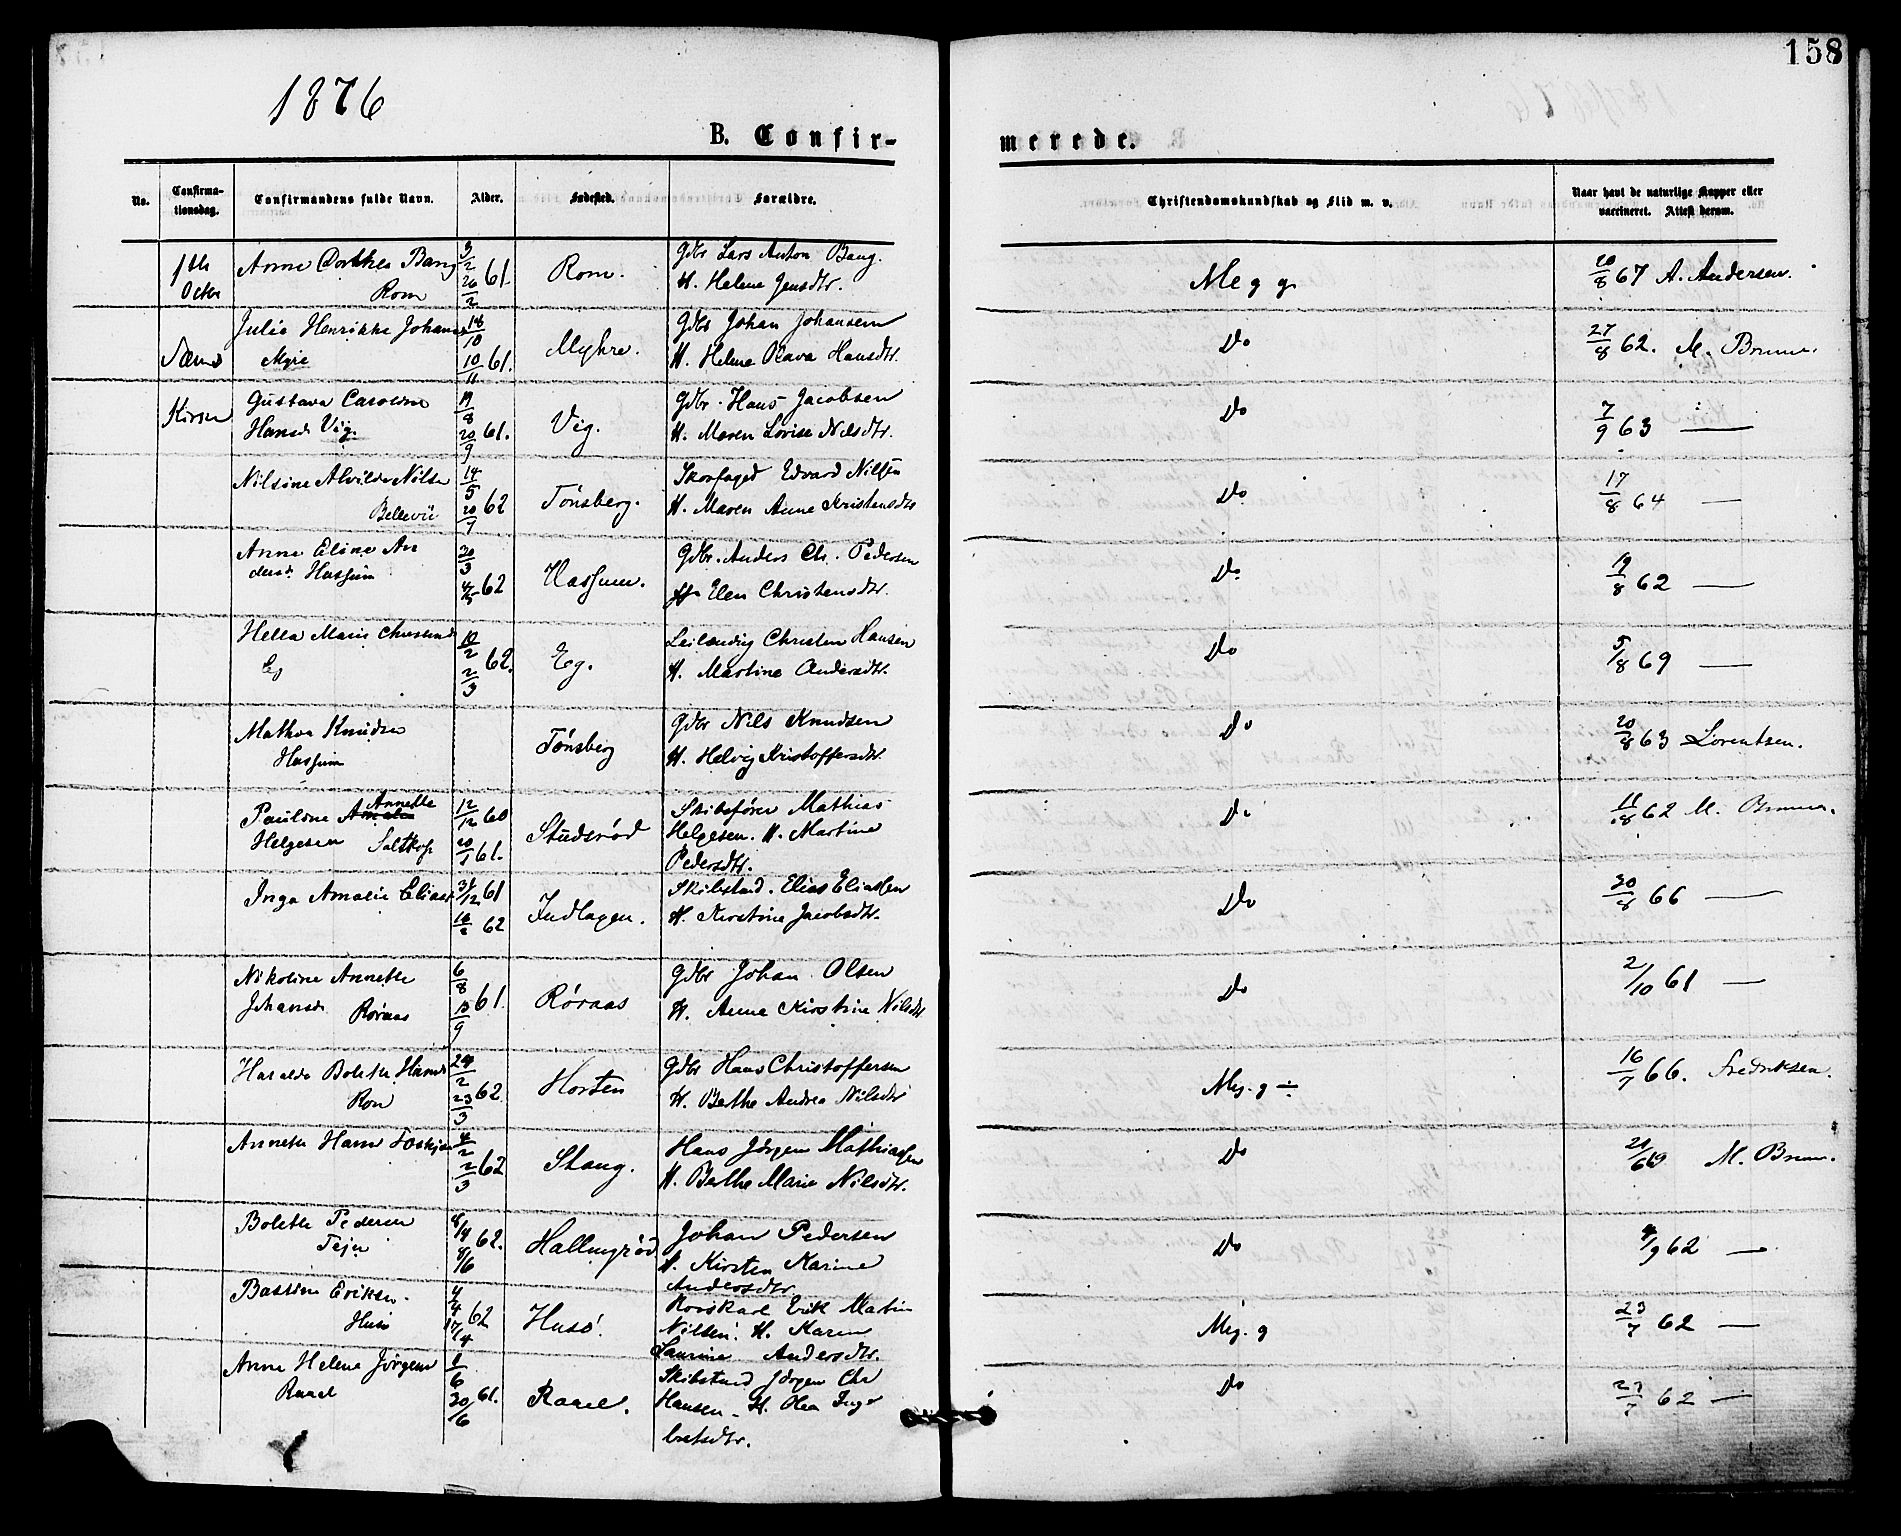 158
1876
B. Confir-
merede.
No.
Confirma-
tionsdag.
Confirmandens fulde Navn.
Alder.
Fødested.
Forældre.
Christendomskundskab og Flid m. v.
Naar havt de naturlige Kopper eller
vaccineret. Attest derom.
1ste
Octbr
Anne Dorthea Bang
Rom
3/2 61.
26/2
Rom.
Gdbr Lars Anton Bang.
H. Helene Jensdtr.
Meg g
20/8 67 A. Andersen.
Sems
Julie Henrikke Johans
Myre
18/10
10/11 61.
Myhre.
Gdbr Johan Johansen
H. Helene Olava Hansdtr.
Do
27/8 62. M. Bruun.
Kirken
Gustava Caroline
Hansd. Vig.
19/8
20/9 61.
Vig.
Gdbr. Hans Jacobsen
H. Maren Lovise Nilsdtr.
Do
7/9 63 —
Nilsine Alvilde Nilsen
Bellevü
14/5 62
20/7
Tönsberg.
Skovfoged Edvard Nilsen
H. Maren Anne Kristensdtr
Do
17/8 64 —
Anne Eline An
dersd. Hassum
30/3
4/5 62
Hassum.
Gdbr. Anders Chr. Pedersen
H. Elen Christensdtr.
Do
19/8 62 —
Hella Marie Christensd
Eg
10/2 62.
2/3
Eg.
Leilending Christen Hansen
H. Martine Andersdtr.
Do
5/8 69 —
Mathea Knudsen
Hassum
Tönsberg
Gdbr Nils Knudsen
H. Helvig Kristoffersdtr.
Do
20/8 63 Lorentsen.
Annette
Pauline Amalie
Helgesen Saltkop
12/12 60
20/1 61.
Studsröd
Skibsförer Mathias
Helgesen. H. Martine
Pedersdtr.
Do
11/8 62 M. Bruun.
Inga Amalie Elias
31/12 61
16/2 62
Indlagen.
Skibstmd. Elias Eliassen
H. Kirstine Jacobsdtr.
Do
30/8 66 —
Nikoline Annette
Johansd. Röraas
6/8 61.
10/9
Röraas
Gdbr Johan Olsen
H. Anne Kirstine Nilsdtr
Do
2/10 61 —
Haralda Bolette Hansd
Rom
24/2
23/3 62
Horten
Gdbr Hans Christoffersen
H. Berthe Andrea Nilsdtr
Meg. g ÷
16/7 66. Fredriksen.
Annette Hansen
4/2
2/3 62
Stang.
Hans Jörgen Mathiassen
H. Berthe Marie Nilsdtr.
Do
21/6 69 M. Bruun.
Bolette Pedersen
Teje
8/4 62.
8/6
Hallingröd
Johan Pedersen
H. Kirsten Karine
Andersdtr.
Do
4/9 62 —
Bastine Eriksen.
Husö
4/4 62
17/4
Husö.
Rorskarl Erik Martin
Nilsen. H. Karen
Laurine Andersdtr.
Meg. g
23/7 62 —
Anne Helene Jörgens
Rael
1/6 61.
30/6
Raael.
Skibstmd Jörgen Chr
Hansen. H. Olea Inge
bretsdtr.
Do
23/7 62 —